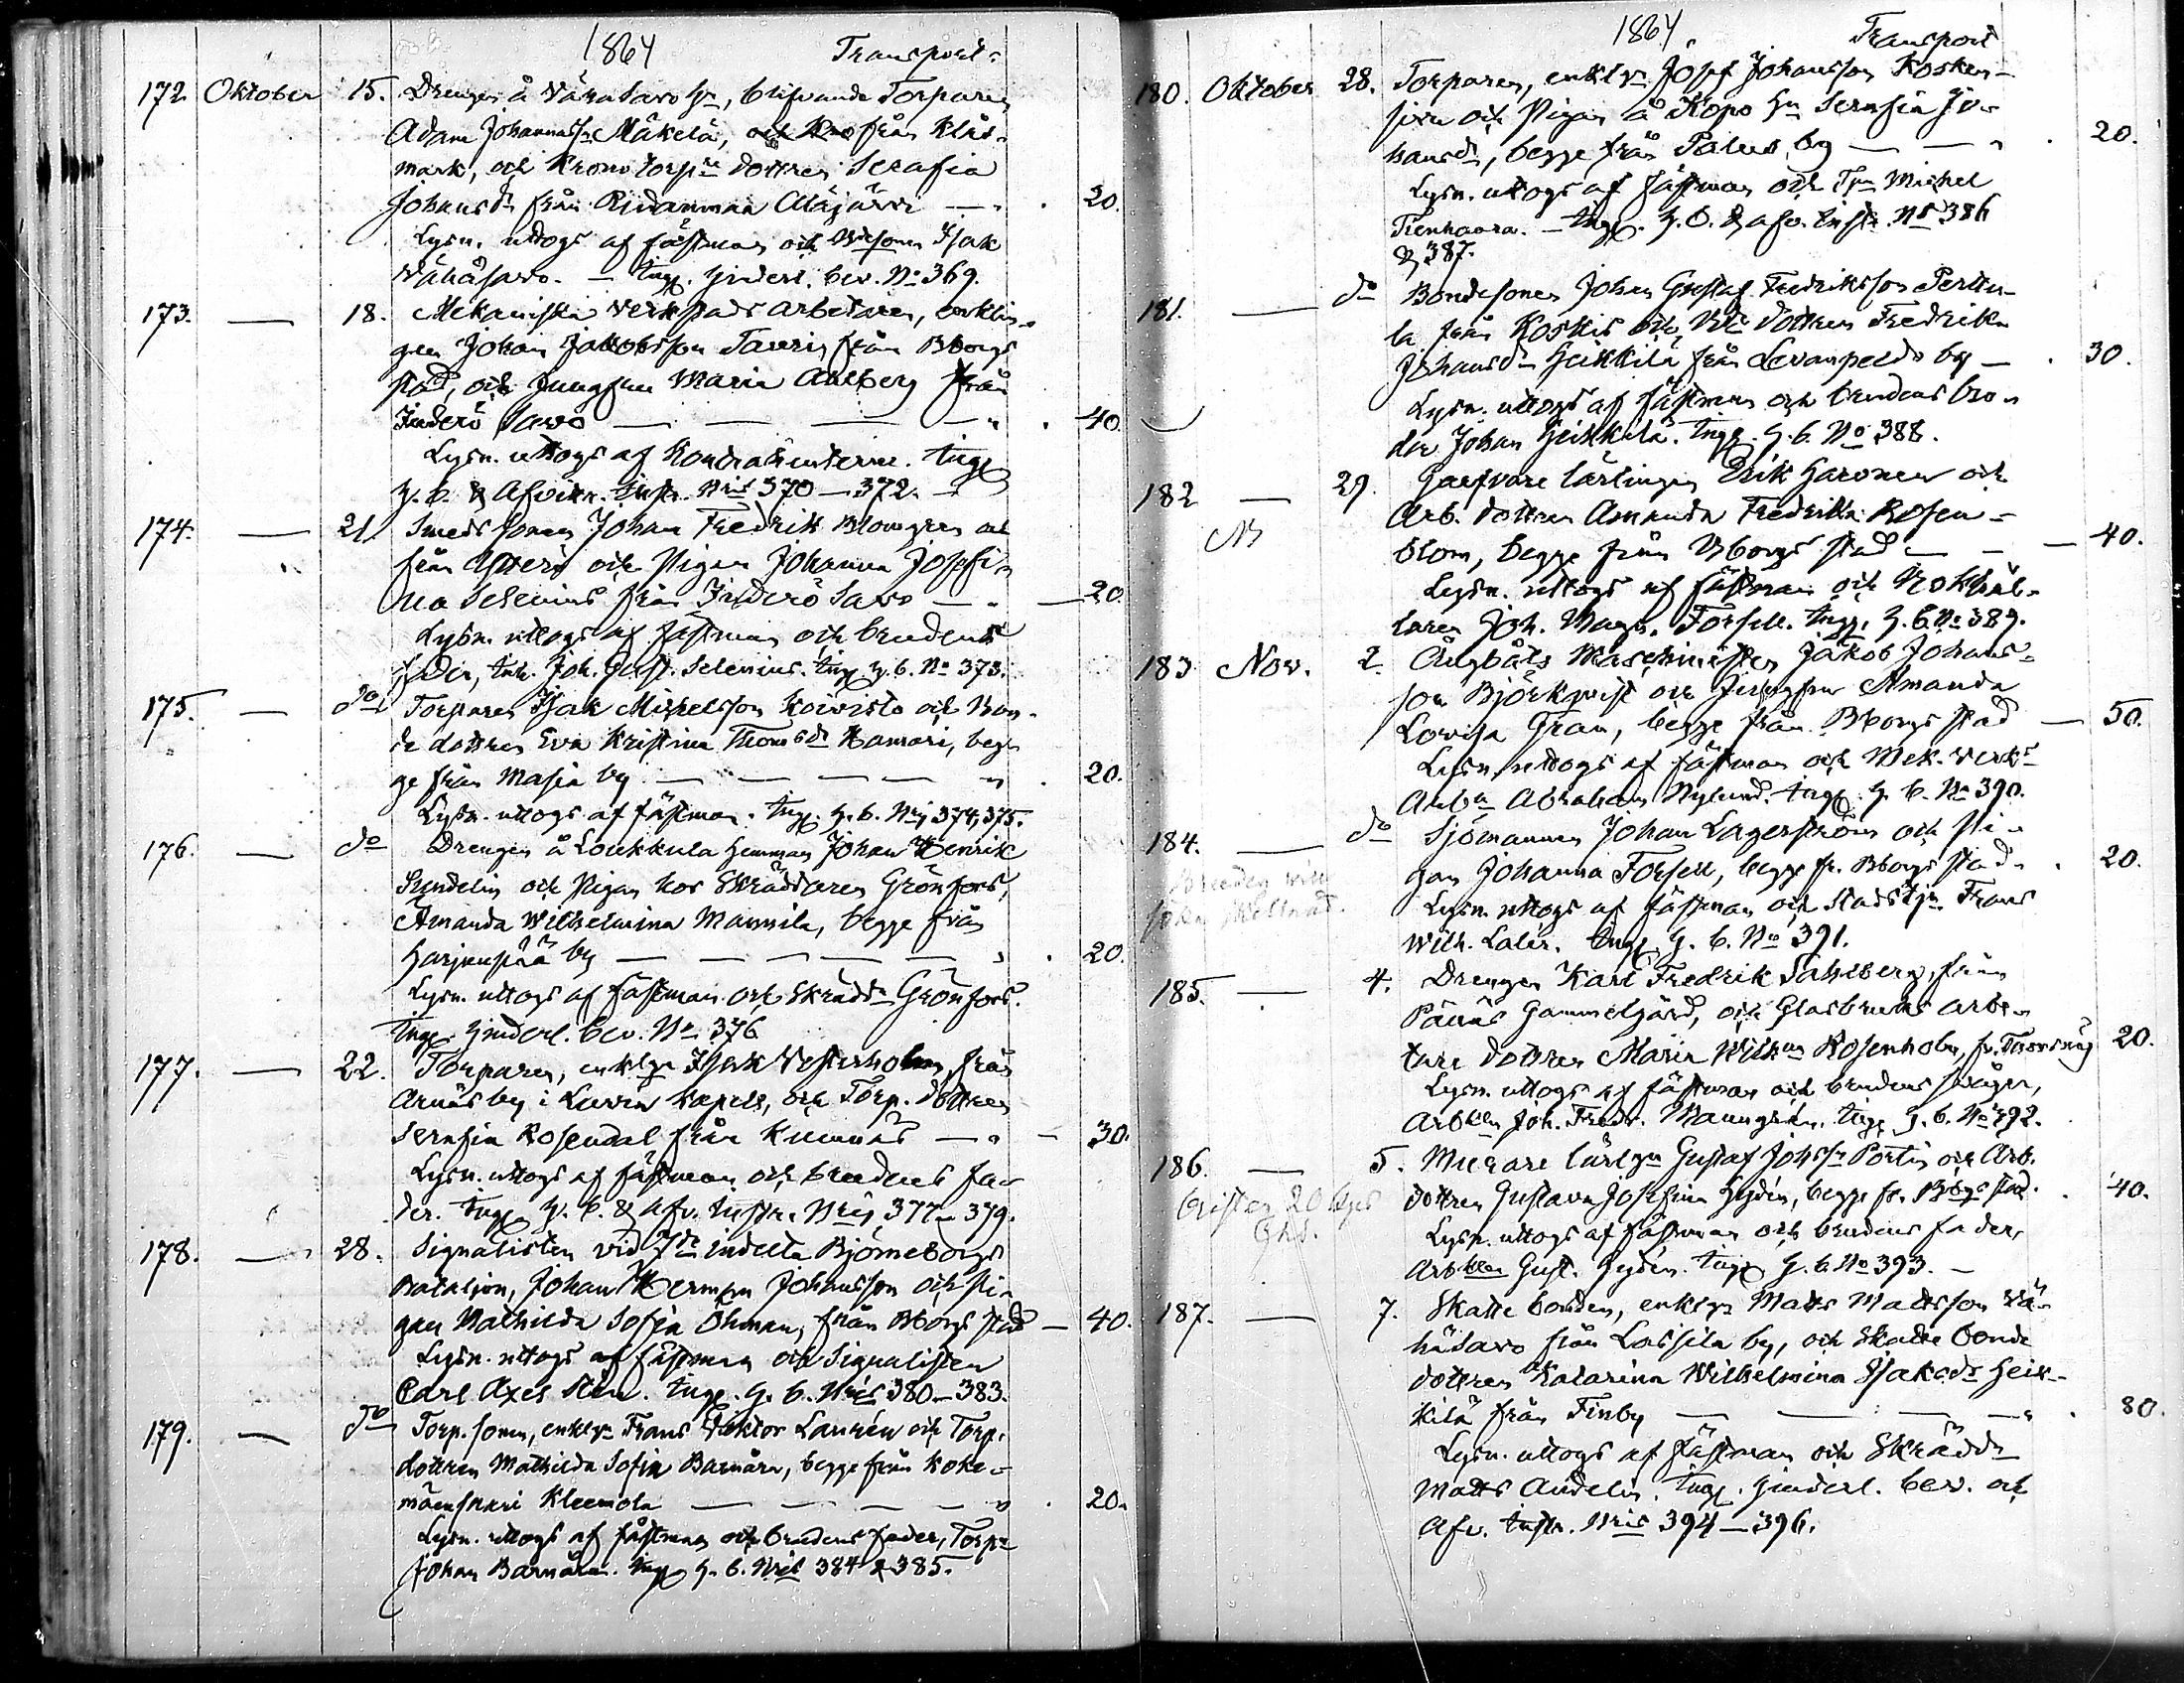 1864 Transport
172. Oktober 15. Drengen å Vähäsavo Hn, blifvande Torparen
Adam Johansson Mäkelä, från Klås-
mark, och Kronotorpre dottren Serafia
Johansdr från Rudanmaa Alajärvi — 20.
Lysn. uttogs af fästman och Isak
Vähäsavo. — Ingg. Hinderl. bev. No 369.
173. — 18. Mekaniska Verkstads Arbetaren, enklin-
gen Johan Jakobsson Tavrin från Bborgs
stad, och Jungfrun Maria Ahlberg från
Inderö Savo — — — 40.
Lysn. uttogs af Kontrahenterne. Ingg
H. b. & Afvittr. Instr. Nris 370—372.
174. — 21. Smeds sonen Johan Fredrik Blomgren
från och Pigan Johanna Josefi-
na Selenius från Inderö Savo — 20.
Lysn. uttogs af fästman och brudens
fader, Inh. Joh. Gust. Selenius. Ingg H. b. No 373.
175. — do Torparen Isak Michelsson Koivisto och Bon-
de dottren Eva Kristina Thomasdr Hamari, beg-
ge från Masia by — — — 20.
Lysn. uttogs af fästman. Ingg. H. b. Nris 374, 375.
176. — do Drengen å Loukkula Hemman Johan Henrik
Sundelin och Pigan hos Skräddaren Grönfors,
Amanda Wilhelmina Mannila, begge från
Harjunpää by — — — 20.
Lysn. uttogs af fästman och Skräddn Grönfors.
Ingg. Hinderl. bev. No 376
177. — 22. Torparen, enklgn Isak Vesterholm från
Arnäs by i Luvia Kapell, och Torp. dottren
Serafia Rosendal från Kumnäs — 30.
Lysn. uttogs af fästman och brudens fa-
der. Ingg. H. b. & Afv. Instr. Nris 377—379.
178. — 28. Signalisten vid 7de indelta Björneborgs
Bataljon, Johan Herman Johansson och Pi-
gan Mathilda Sofia Öhman, från Bborgs stad — 40.
Lysn. uttogs af fästman och Signalisten
Carl Axel Sten. Ingg. H. b. Nris 380—383.
179. — do Torp. sonen, enklgn Frans Viktor Laurén och Torp.
dottren Mathilda Sofia Barnära, begge från Koke-
mäensaari Kleemola — — — 20.
Lysn. uttogs af fästman och brudens fader, Torpn
Johan Barnära. Ingg H. b. Nris 384 & 385.
1864. Transport
180. Oktober 28. Torparen, enklgn Josef Johansson Kosken-
och Pigan å Kopo Hn Serafia Jo-
hansdr, begge från Palus by — — 20.
Lysn. uttogs af fästman och Tpn Michel
Tienhaara. — Ingg. H. b. & Afv. Instr. No 386
& 387.
181. — do Bondesonen Johan Gustaf Fredriksson Perttu-
la från Koskis och Bde dottren Fredrika
Johansdr Heikkilä från Levanpelto by — 30.
Lysn. uttogs af fästman och brudens bro-
der Johan Heikkilä. Ingg. H. b. No 388.
182 — 29. Garfvare lärlingen Erik Haronen och
NB Arb. dottren Amanda Fredrika Rosen-
blom, begge från Bborgs stad — — 40.
Lysn. uttogs af fästman och Bokhål-
laren Joh. Magn. Forsell. Ingg. H. b. No 389.
183 Nov. 2. Ångbåts Maschinisten Jakob Johans-
son Björkqvist och Jungfrun Amanda
Lovisa Gran, begge från Bborgs stad — 50.
Lysn. uttogs af fästman och Mek. Verks
Arbn Abraham Nylund. Ingg. H. b. No 390.
184. — do Sjömannen Johan Lagerström och Pi-
gan Johanna Forsell, begge fr. Bborgs stad. 20.
Bruden vill
söka skillnad.
Lysn. uttogs af fästman och Stadstjn. Frans
Wilh. Lalér. Ingg. H. b. No 391.
185. — 4. Drengen Karl Fredrik Sahlberg, från
Påmas Gammelgård, och Glasbruks arbe-
tare dottren Maria Wilhna Rosenholm, fr. Thorsnäs 20.
Lysn. uttogs af fästman och brudens svåger,
Arbkln Joh. Fredr. Manngrén. Ingg. H. b. No 392.
186. — 5. Murare lärlgn Gustaf Johsn Portin och Arb.
dottren Gustava Josefina Hydén, begge fr. Bbgs stad. 40.
Brister 20
Lysn. uttogs af fästman och brudens fader,
Arbkln Gust. Hydén. Ingg. H. b. No 393. —
187. — 7. Skatte bonden, enklgn Matts Mattsson Vä-
häsavo från Lassila by, och Skatte bonde
dottren Katarina Wilhelmina Isaksdr Heik-
kilä från Finby — — — 80.
Lysn. uttogs af fästman och Skräddn
Matts Andelin. Ingg. Hinderl. bev. och
Afv. Instr. Nris 394—396.